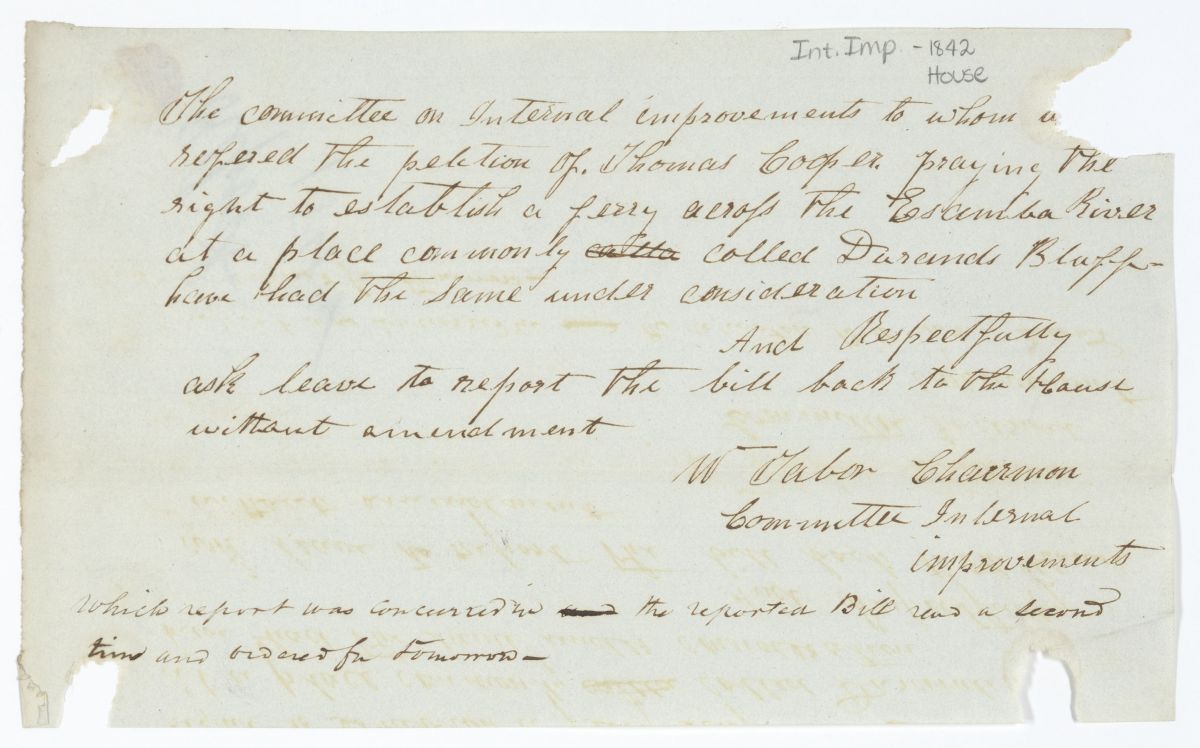 Int. Imp. - 1842
House
The committee on Internal improvements to whom w
refered the petition of. Thomas Cooper. praying the
right to establish a ferry across the Escamba River
at a place commonly called Durands Bluff-
have had the same under consideration
And Respectfully
ask leave to report the bill back to the House
without amendment
W Tabor Chaermon
Committee Internal
improvements
which report was concurred in the reported Bill read a second
time and ordered for tomorrow-